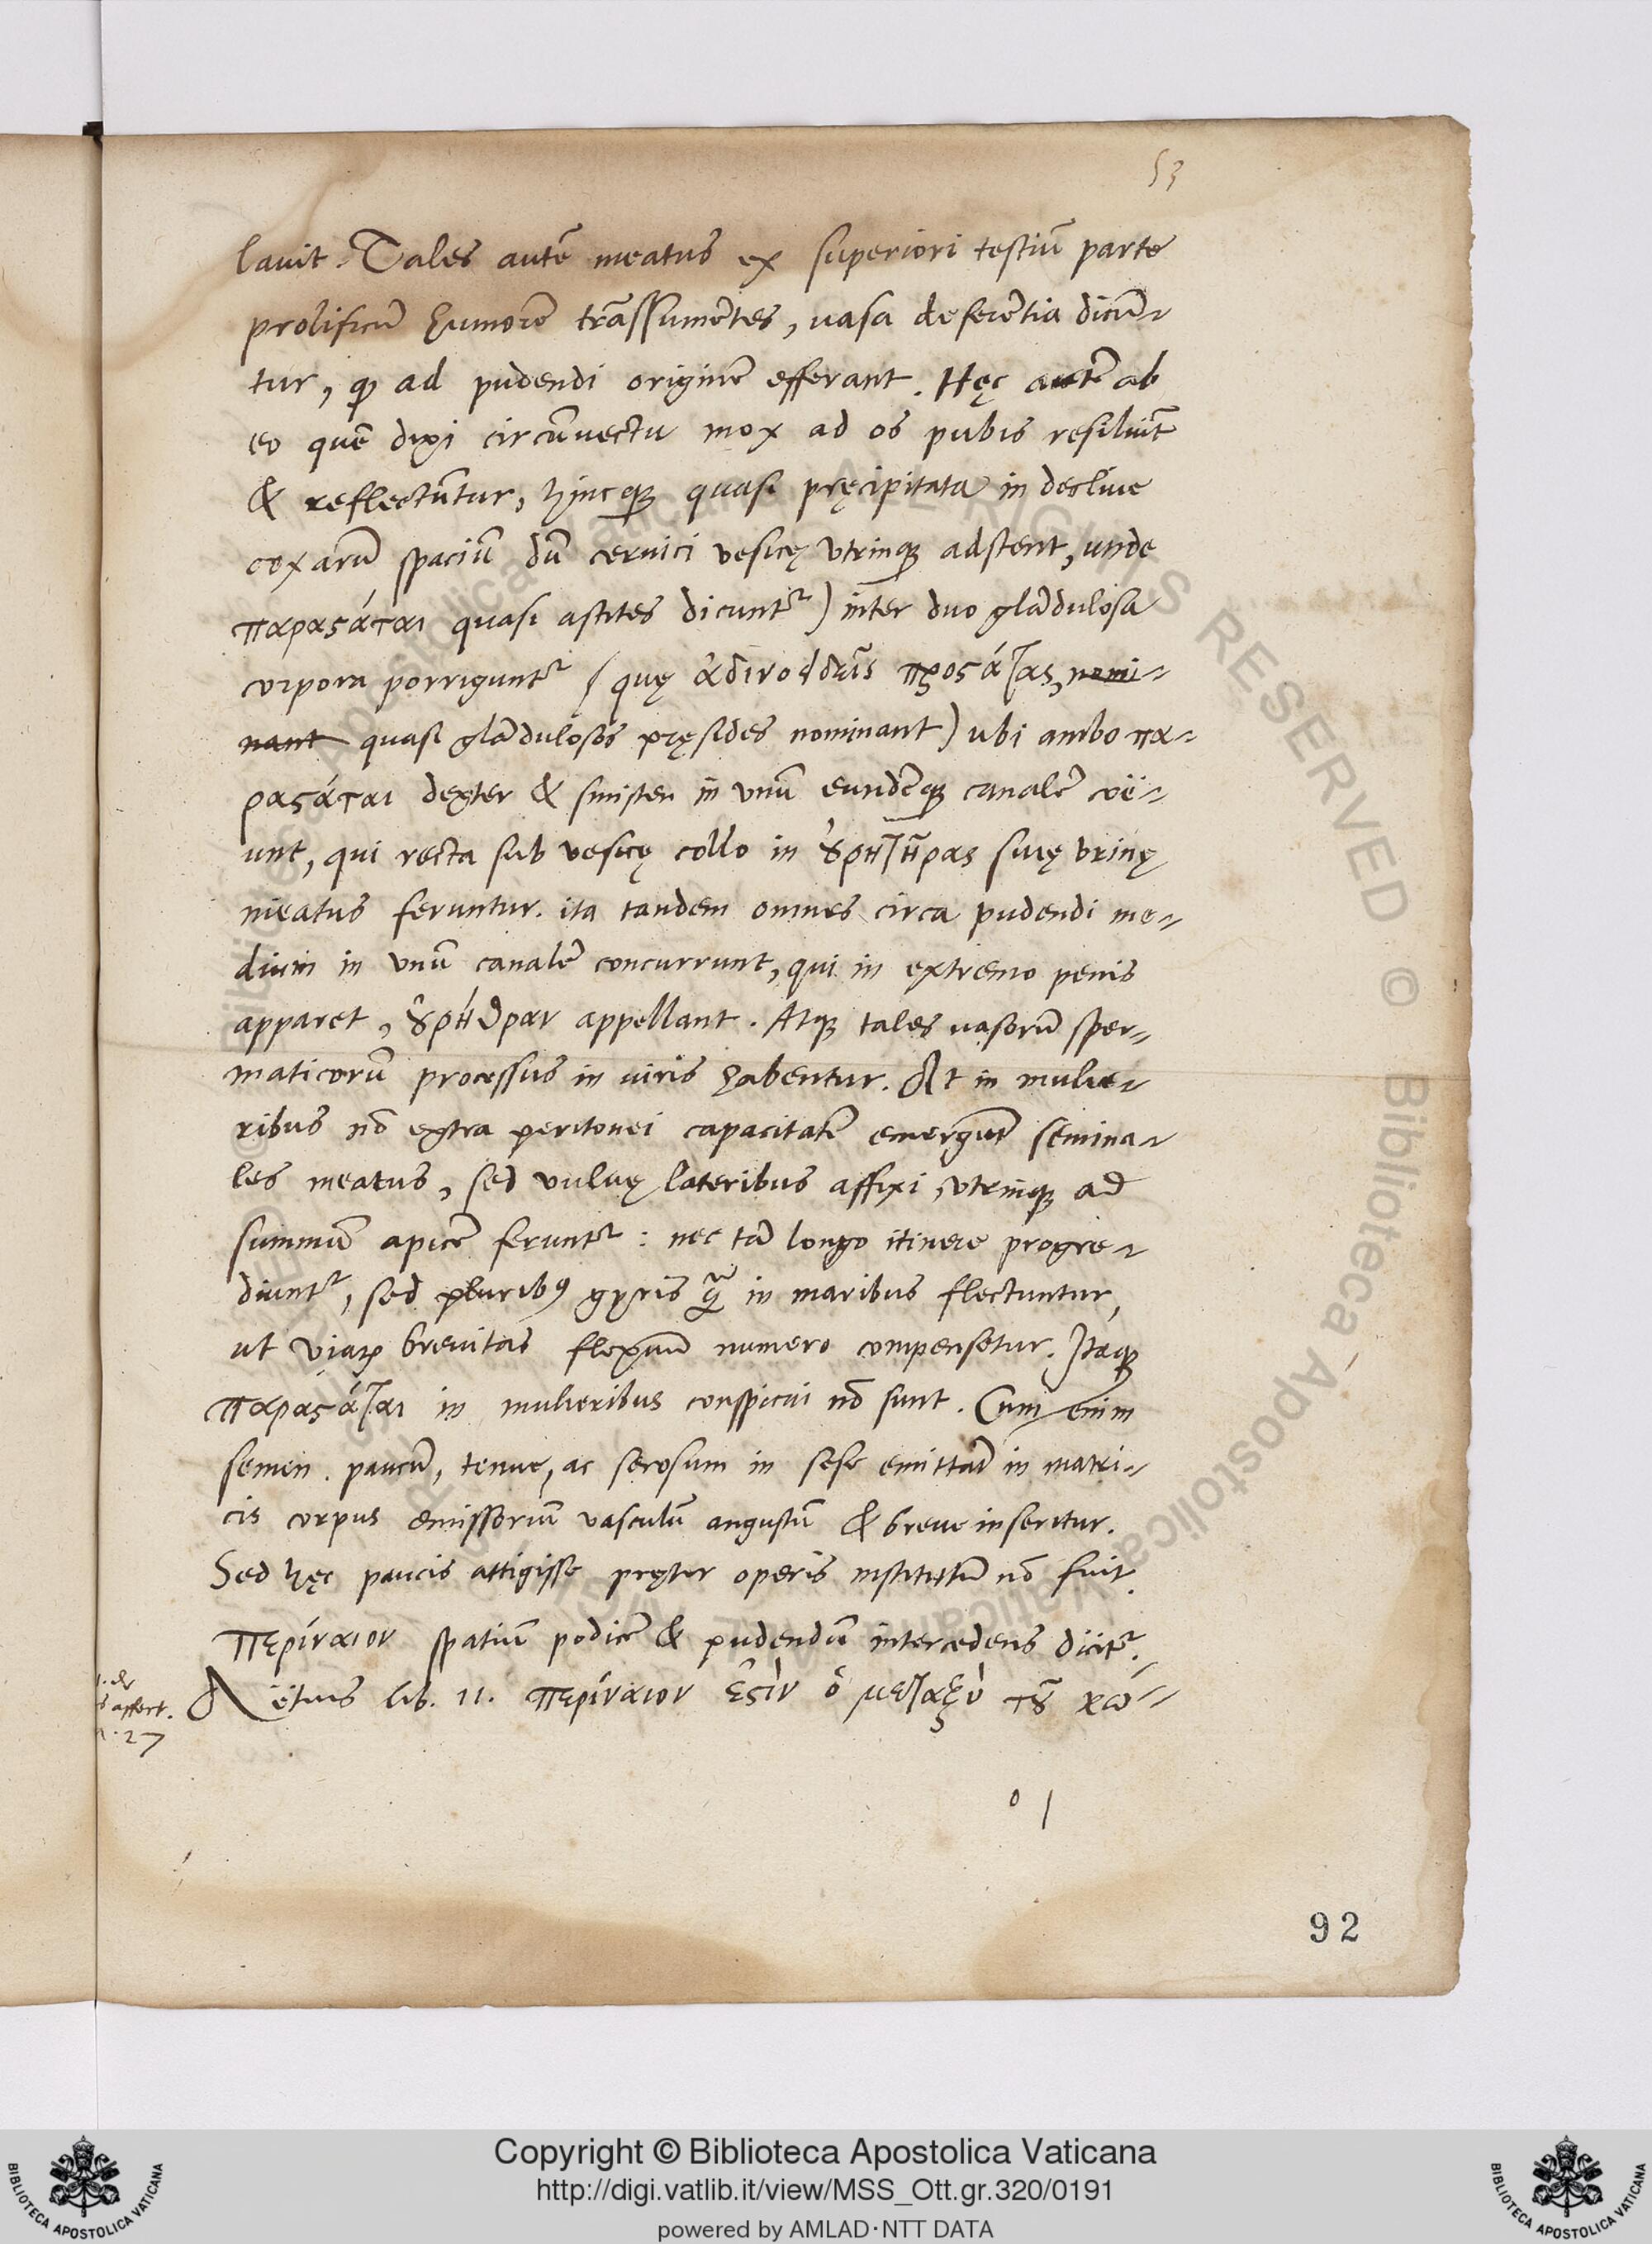 53
lauit. Tales autē meatus ex superiori testiū parte
prolificū humorē trāssumētes, uasa deferētia dicū-
tur, ꝙ ad pudendi originē efferant. Hęc autē ab
eo quē dixi circūuectu mox ad os pubis resiliūt
& reflectūtur, hincꝙ quasi pręcipitata in decliue
coxarū spaciū dū ceruici vesicę vtrinꝙ adstent, unde
παραςάται quasi astites dicuntr) inter duo glādulosa
corpora porriguntr (quę ἀδινοδδεῖς προςάτας, nomi-
nant quasi glādulosos pręsides nominant) ubi ambo πα-
ραςάται dexter & sinister in vnū eundēꝙ canalē coë-
unt, qui recta sub vesicę collo in ȣ̓ρητῆρας siuę vrinę
meatus feruntur. ita tandem omnes circa pudendi me-
dium in vnū canalē concurrunt, qui in extremo penis
apparet, ȣ̓ρήθραν appellant. Atꝙ tales uasorū sper-
maticorū processus in uiris habentur. At in mulie-
ribus nō extra peritonei capacitatē emergūt semina-
les meatus, sed uuluę lateribus affixi, vtrinꝙ ad
summū apicē feruntr : nec tā longo itinere progre-
diuntr, sed pluribꝰ gyris ꝙ̄ in maribus flectuntur,
ut viaꝝ breuitas flexuū numero compensetur. Itaꝙ
παραςάται in mulieribus conspicui nō sunt. Cum enim
semen paucū, tenue, ac serosum in sese emittāt in matri-
cis corpus emissoriū vasculū angustū & breue inseritur.
Sed hęc paucis attigisse pręter operis institutū nō fuit.
περίναιον spatiū podicē & pudendū intercedens dicitr.
Aëtius lib. 11. περίναιον ἐςὶν ὁ μεταξὺ τȣ͂ χω-
affect.
27
92
Copyright © Biblioteca Apostolica Vaticana
http://digi.vatlib.it/view/MSS_Ott.gr.320/0191
powered by AMLAD·NTT DATA
BIBLIOTECA APOSTOLICA VATICANA
BIBLIOTECA APOSTOLICA VATICANA